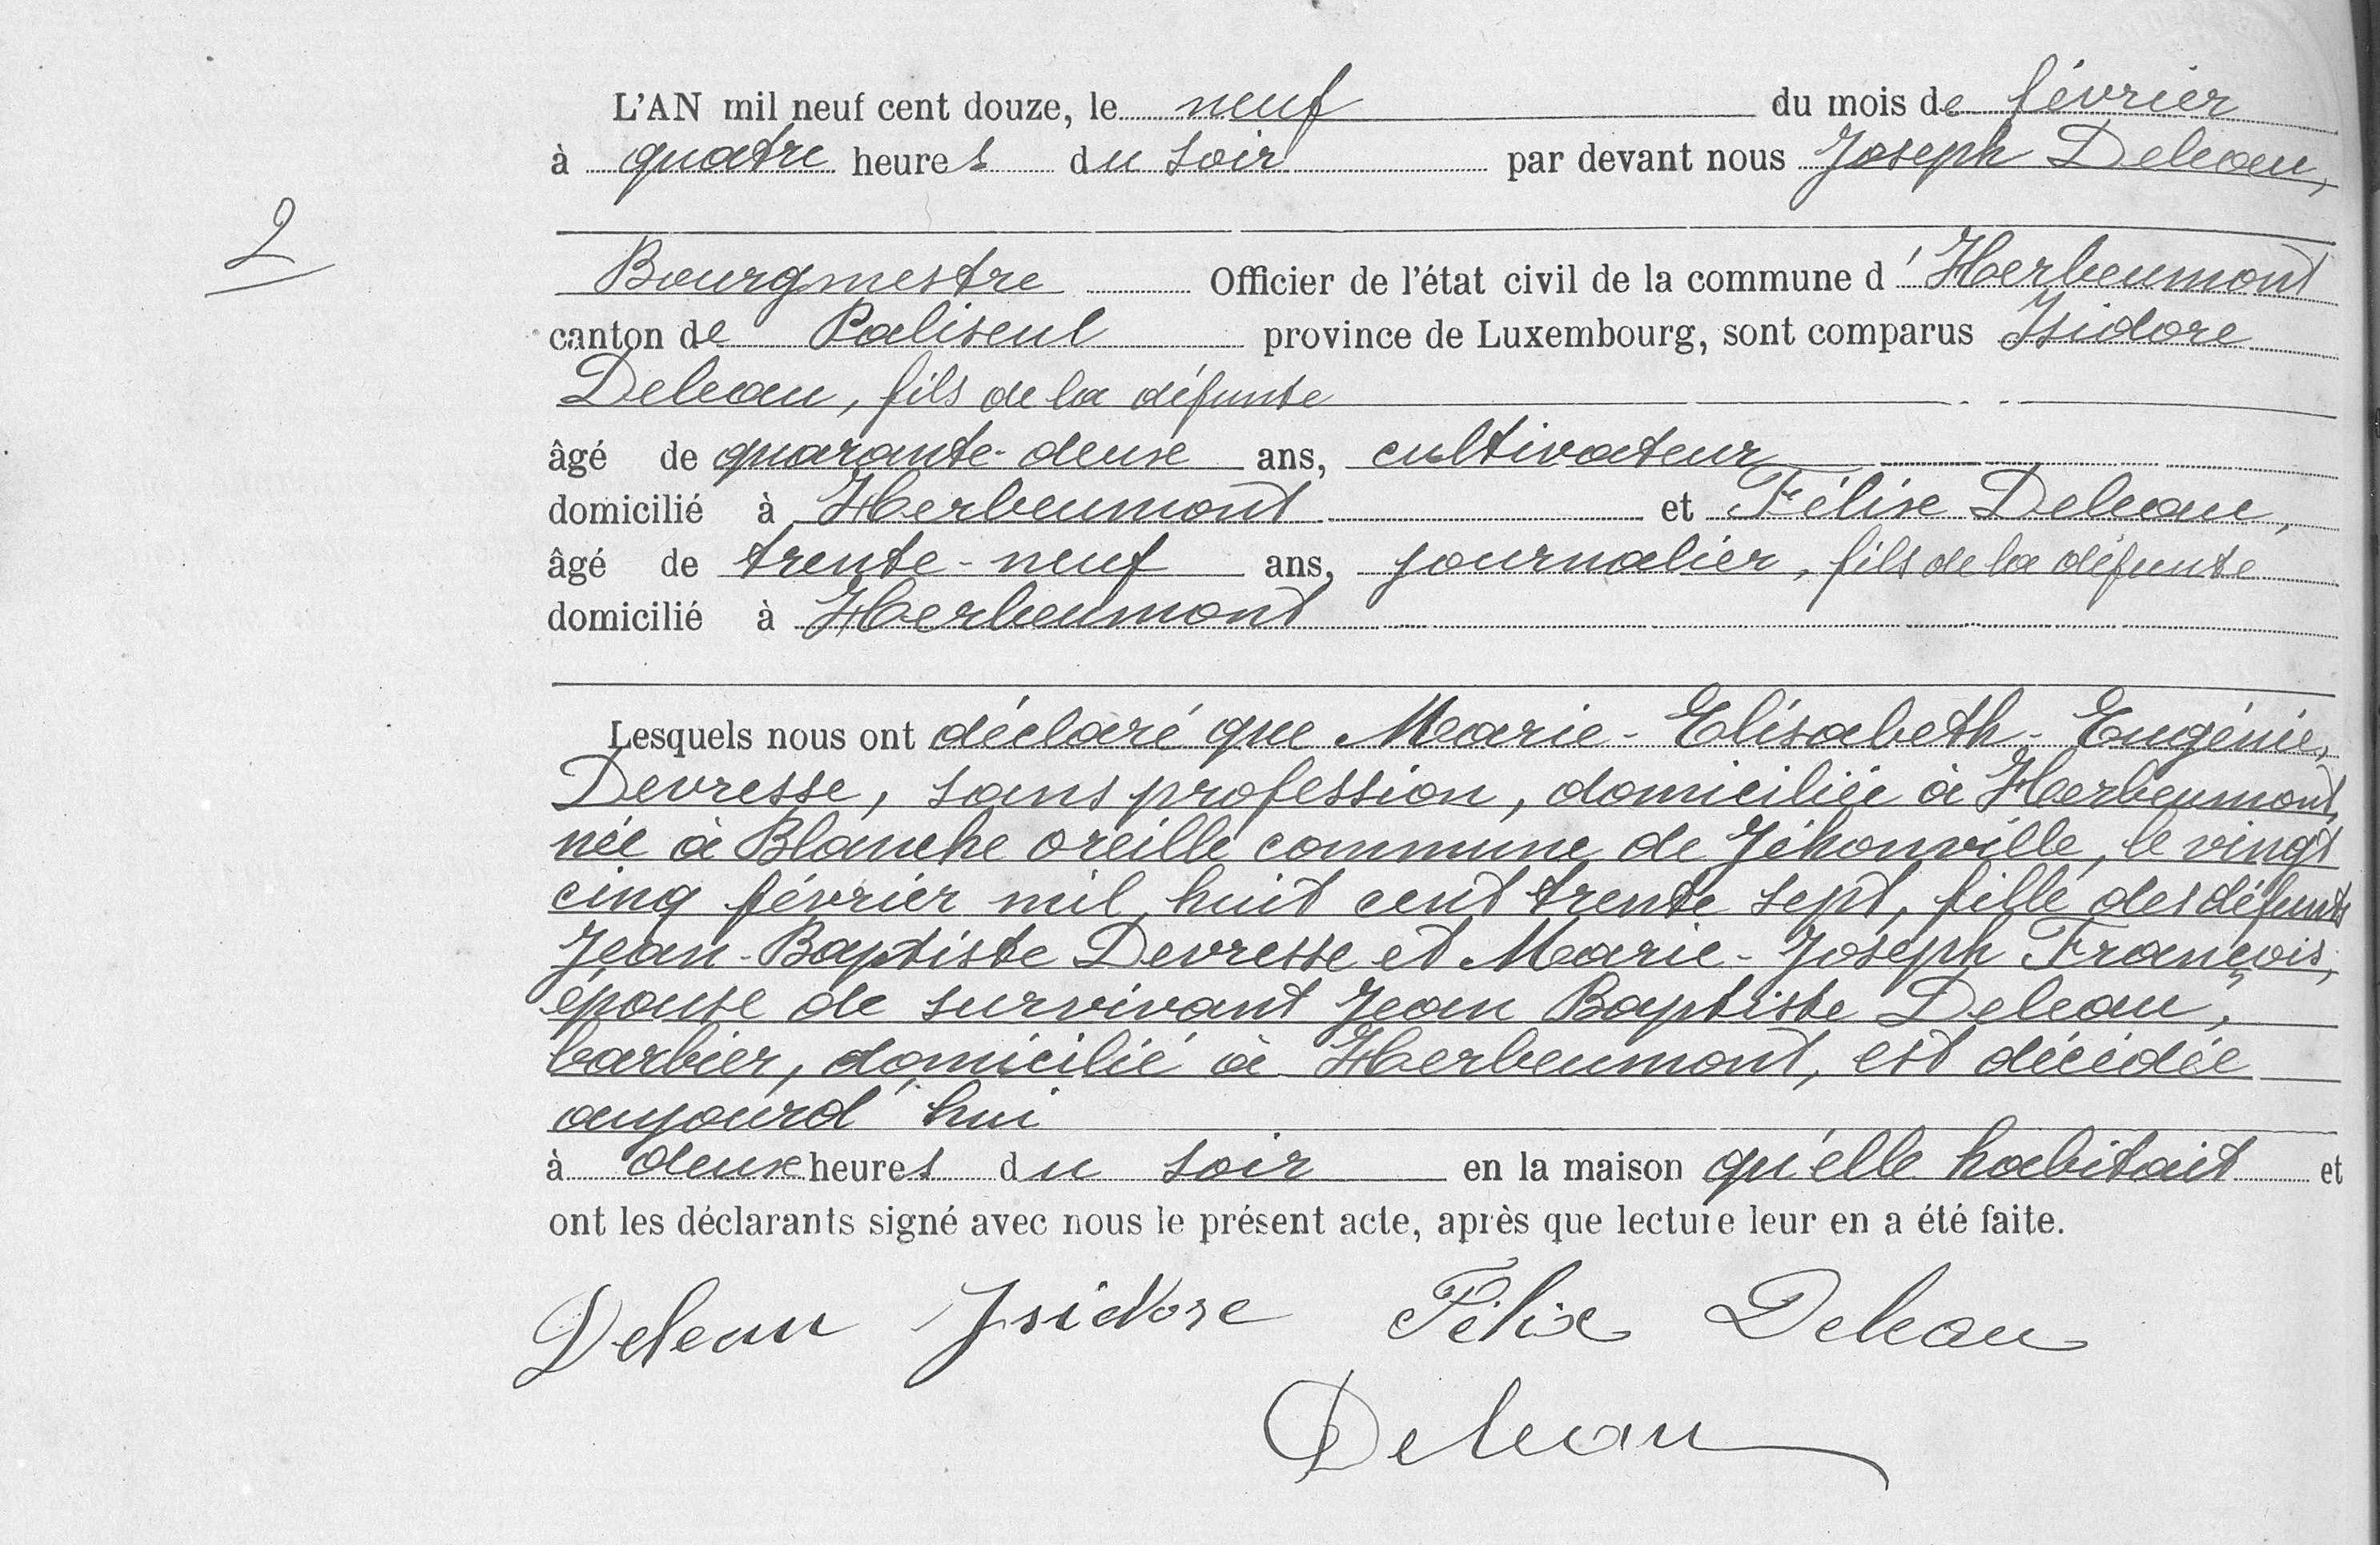 L'AN mil neuf cent douze, le neuf du mois de février
à quatre heures du soir par devant nous Joseph Deleau,
2
Bourgmestre Officier de l'état civil de la commune d'Herbeumont
canton de Paliseul province de Luxembourg, sont comparus Isidore
Deleau, fils de la défunte
âgé de quarante-deux ans, cultivateur
domicilié à Herbeumont et Félix Deleau,
âgé de trente-neuf ans, journalier, fils de la défunte
domicilié à Herbeumont
Lesquels nous ont déclaré que Marie-Elisabeth-Eugénie,
Devresse, sans profession, domiciliée à Herbeumont,
née à Blanche oreille commune de Jéhonville, le vingt
cinq février mil huit cent trente sept, fille des défunts
Jean-Baptiste Devresse et Marie-Joseph François,
épouse de survivant Jean Baptiste Deleau,
barbier, domicilié à Herbeumont, est décédée
aujourd'hui
à deux heures du soir en la maison qu'elle habitait et
ont les déclarants signé avec nous le présent acte, après que lecture leur en a été faite.
Deleau Isidore Félix Deleau
Deleau